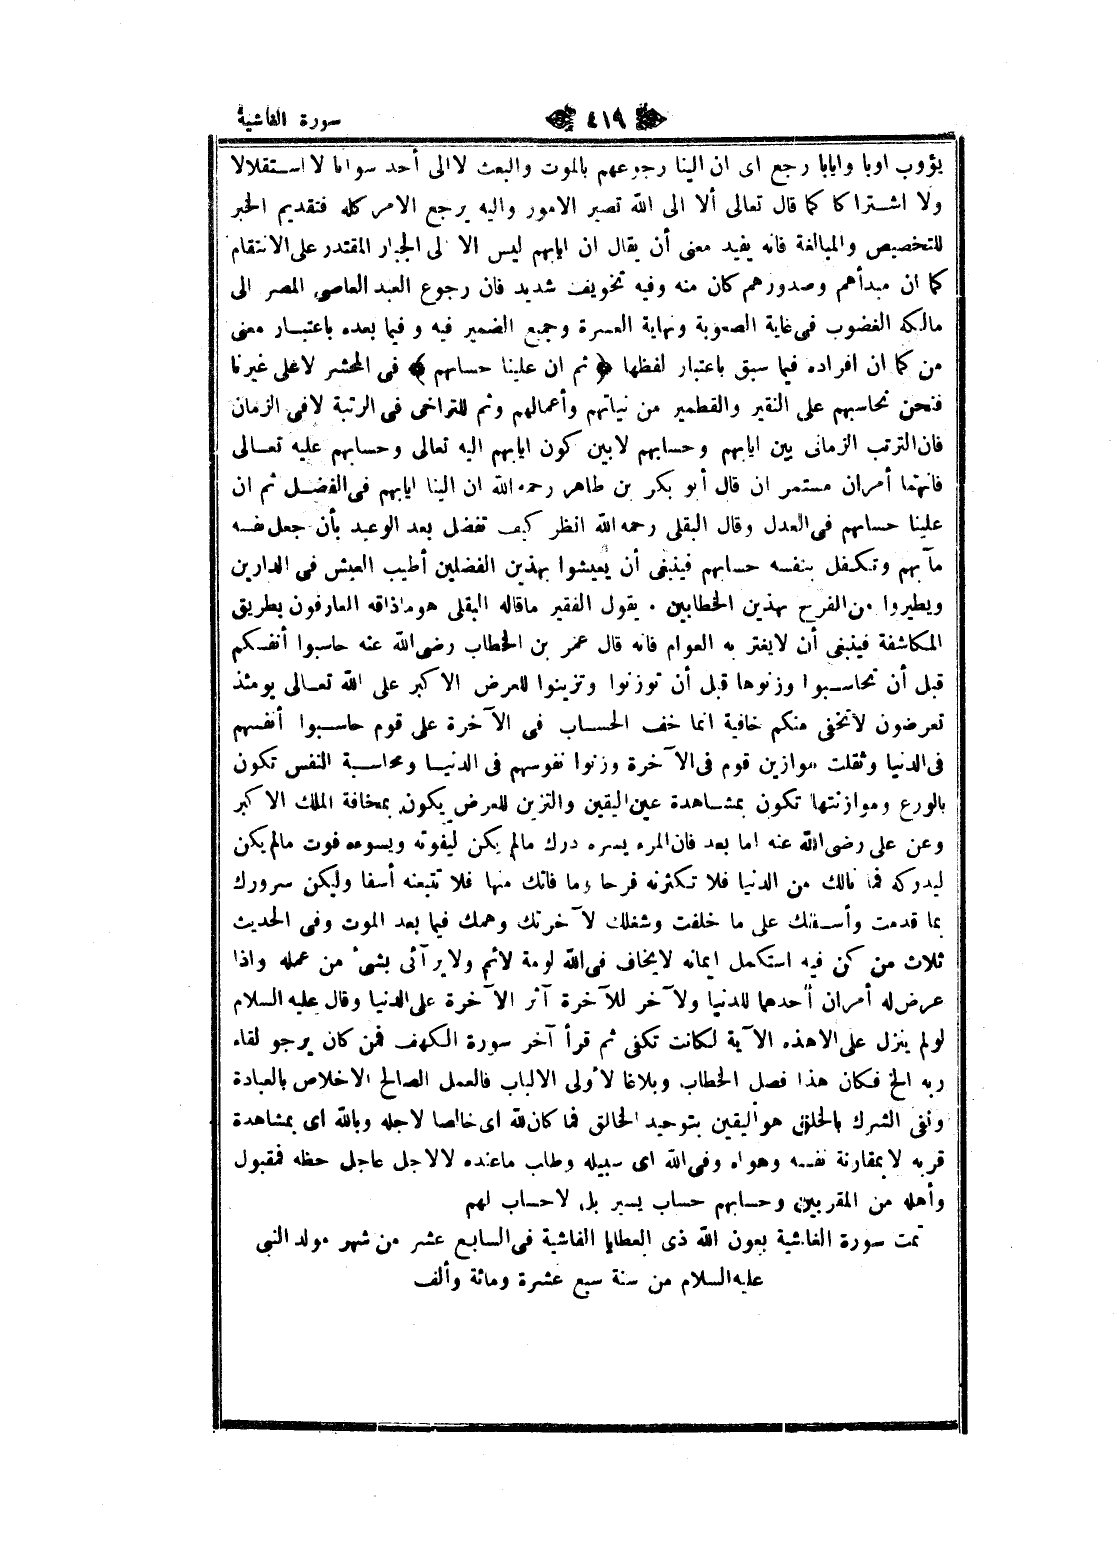 سورة الغاشية ٤١٩
يؤوب اوبا وايابا رجع اى ان الينا رجوعهم بالموت والبعث لا الى أحد سوانا لا استقلالا
ولا اشتراكا كما قال تعالى ألا الى الله تصير الامور واليه يرجع الامر كله فتقديم الخبر
للتخصيص والمبالغة فانه يفيد معنى أن يقال ان ايابهم ليس الا الى الجبار المقتدر على الانتقام
كما ان مبدأهم وصدورهم كان منه وفيه تخويف شديد فان رجوع العبد العاصى المصر الى
مالكه الغضوب فى غاية الصعوبة ونهاية العسرة وجميع الضمير فيه و فيما بعده باعتبار معنى
من كما ان افراده فيما سبق باعتبار لفظها ﴿ ثم ان علينا حسابهم ﴾ فى المحشر لا على غيرنا
فنحن نحاسبهم على النقير والقطمير من نياتهم وأعمالهم وثم للتراخى فى الرتبة لا فى الزمان
فان الترتب الزمانى بين ايابهم وحسابهم لا بين كون ايابهم اليه تعالى وحسابهم عليه تعالى
فانهما أمران مستمر ان قال أبو بكر بن طاهر رحمه الله ان الينا ايابهم فى الفضل ثم ان
علينا حسابهم فى العدل وقال البقلى رحمه الله انظر كيف تفضل بعد الوعيد بأن جعل نفسه
مآبهم وتكفل بنفسه حسابهم فينبغى أن يعيشوا بهذين الفضلين أطيب العيش فى الدارين
ويطيروا من الفرح بهذين الخطابين . يقول الفقير ما قاله البقلى هو ما ذاقه العارفون بطريق
المكاشفة فينبغى أن لا يغتر به العوام فانه قال عمر بن الخطاب رضى الله عنه حاسبوا أنفسكم
قبل أن تحاسبوا وزنوها قبل أن توزنوا وتزينوا للعرض الاكبر على الله تعالى يومئذ
تعرضون لا تخفى منكم خافية انما خف الحساب فى الآخرة على قوم حاسبوا أنفسهم
فى الدنيا وثقلت موازين قوم فى الآخرة وزنوا نفوسهم فى الدنيا ومحاسبة النفس تكون
بالورع وموازنتها تكون بمشاهدة عين اليقين والتزين للعرض يكون بمخافة الملك الاكبر
وعن على رضى الله عنه اما بعد فان المرء يسره درك مالم يكن ليفوته ويسوءه فوت مالم يكن
ليدركه فما نالك من الدنيا فلا تكثرنه فرحا وما فاتك منها فلا تتبعنه أسفا وليكن سرورك
بما قدمت وأسفك على ما خلفت وشغلك لآخرتك وهمك فيما بعد الموت وفى الحديث
ثلاث من كن فيه استكمل ايمانه لا يخاف فى الله لومة لائم ولا يرآئى بشىء من عمله واذا
عرض له أمران أحدهما للدنيا ولآخر للآخرة آثر الآخرة على الدنيا وقال عليه السلام
لو لم ينزل على الا هذه الآية لكانت تكفى ثم قرأ آخر سورة الكهف فمن كان يرجو لقاء
ربه الخ فكان هذا فصل الخطاب وبلاغا لأولى الالباب فالعمل الصالح الاخلاص بالعبادة
ونفى الشرك بالخلق هو اليقين بتوحيد الخالق فما كان لله اى خالصا لاجله وبالله اى بمشاهدة
قربه لا بمقارنة نفسه وهواه وفى الله اى سبيله وطلب ما عنده لا لاجل عاجل حظه فمقبول
وأهله من المقربين وحسابهم حساب يسير بل لا حساب لهم
تمت سورة الغاشية بعون الله ذى العطايا الفاشية فى السابع عشر من شهر مولد النبى
عليه السلام من سنة سبع عشرة ومائة وألف